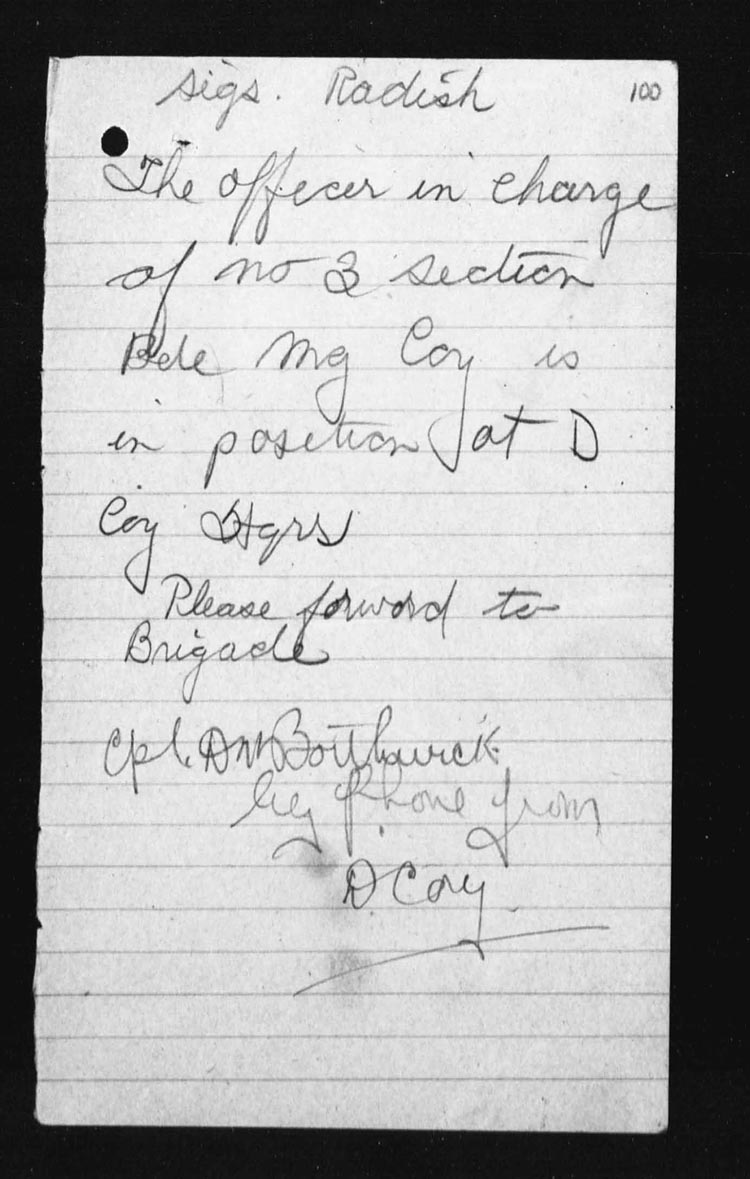 sigs. Radish 100
The officer in charge
of no 3 section
Bde Mg Coy is
in position at D
Coy Hqrs
Please forward to
Brigade
Cpl. DM Borthwick
by phone from
D Coy